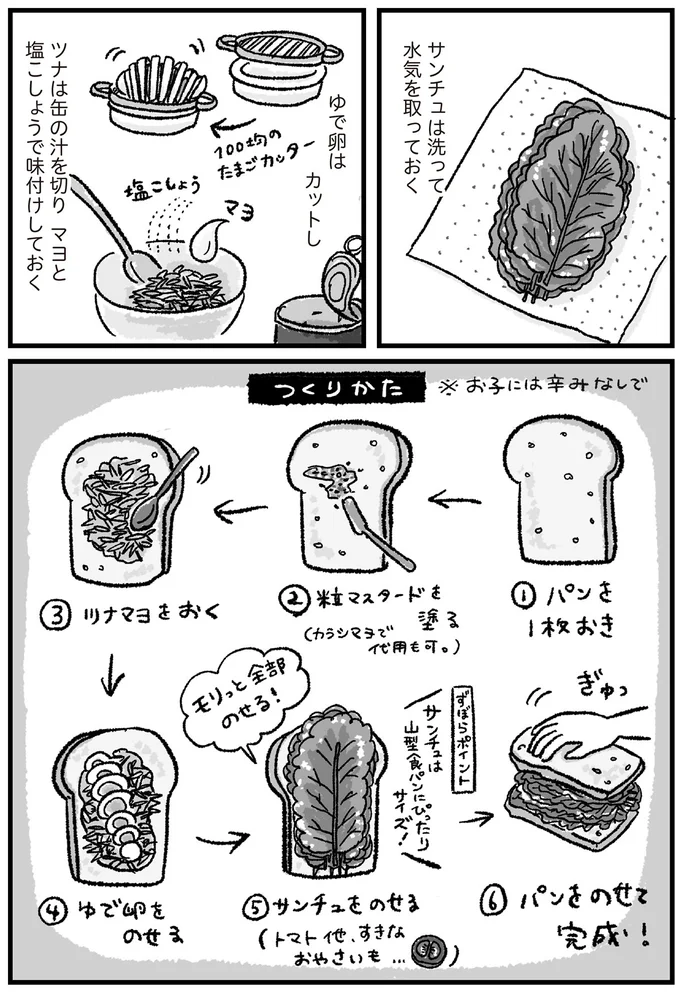 サンチュは洗って
水気を取っておく
ゆで卵は
カットし
100均の
たまごカッター
ツナは缶の汁を切り マヨと
塩こしょうで味付けしておく
塩こしょう
マヨ
つくりかた
※お子には辛みなしで
①パンを
1枚おき
②粒マスタードを
塗る
(カラシマヨで
代用も可。)
③ツナマヨをおく
④ゆで卵を
のせる
モリっと全部
のせる!
⑤サンチュをのせる
(トマト他、すきな
おやさいも…)
ずぼらポイント
サンチュは
山型食パンにぴったり
サイズ!
ぎゅっ
⑥パンをのせて
完成!